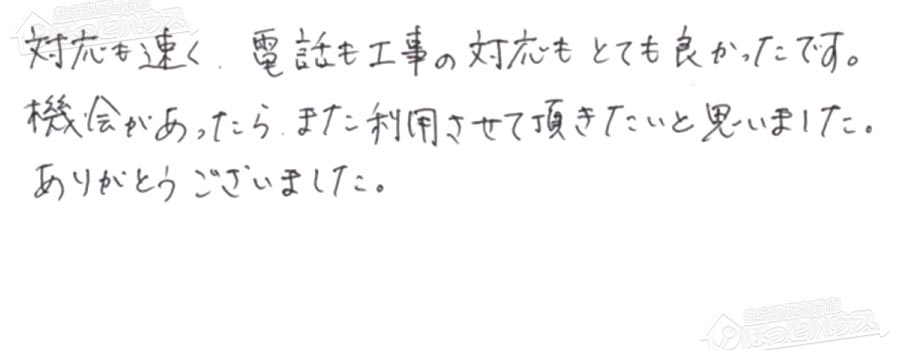 対応も速く、電話も工事の対応もとても良かったです。
機会があったら、また利用させて頂きたいと思いました。
ありがとうございました。
ほっとハウス